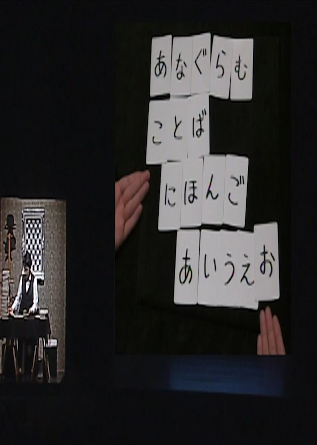 あなぐらむ
ことば
にほんご
あいうえお